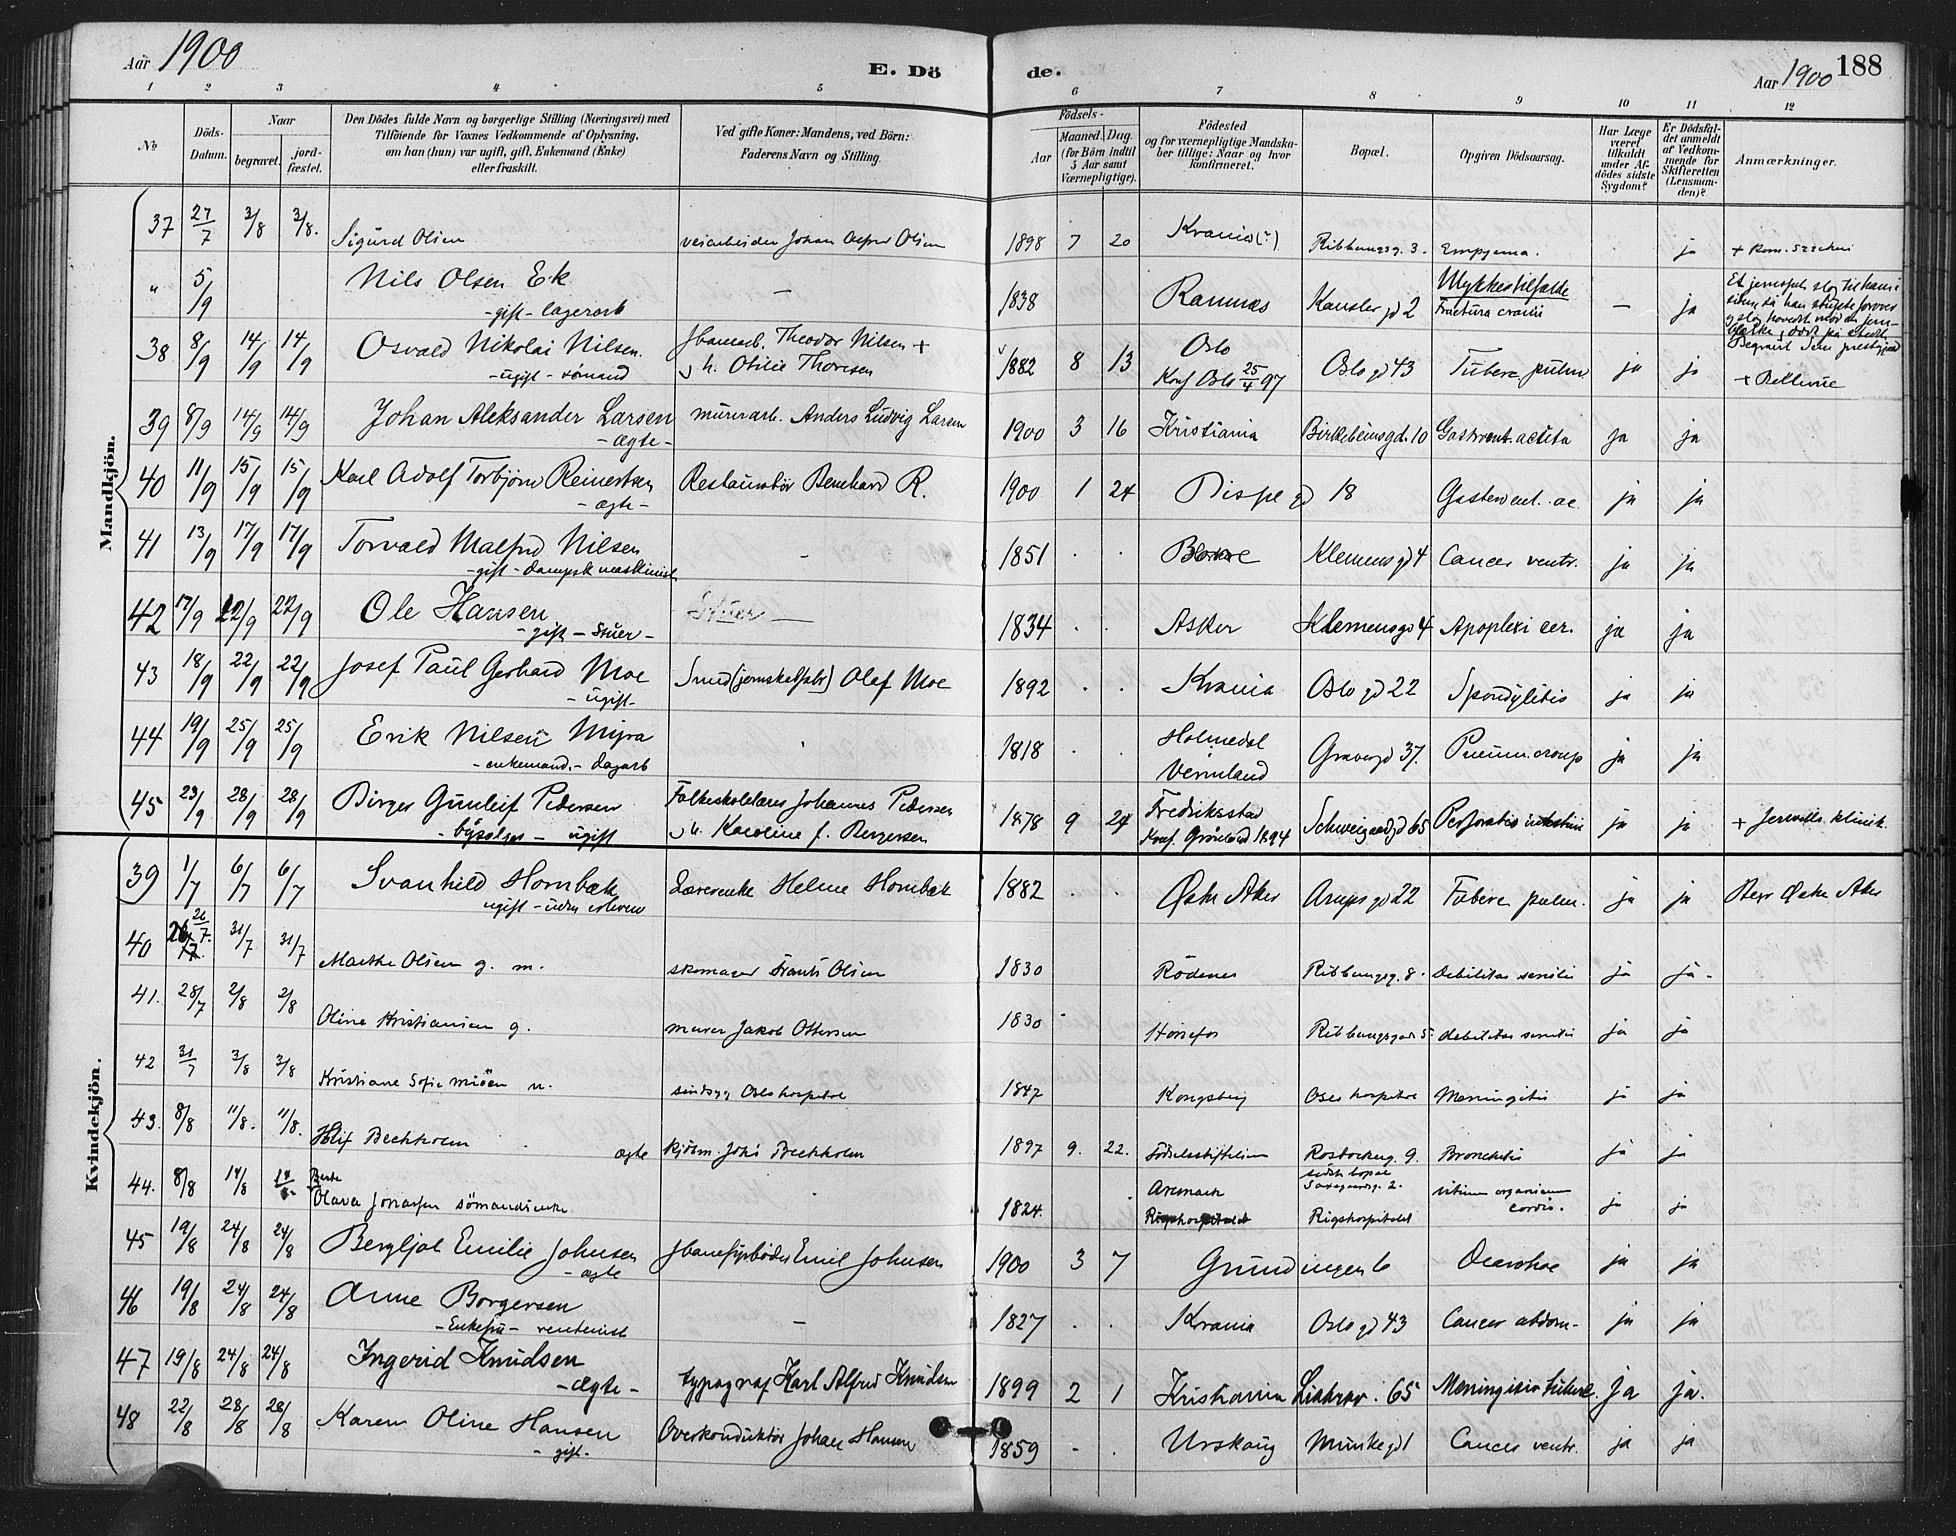 Aar 1900
E. Dö
de.
Aar 1900
188
1 2 3 4 5 6 7 8 9 10 11 12
No
Döds-
Datum.
Naar
begravet.
jord-
fæstet.
Den Dödes fulde Navn og borgerlige Stilling (Næringsvei) med
Tilföiende for Voxnes Vedkommende af Oplysning,
om han (hun) var ugift, gift, Enkemand (Enke)
eller fraskilt.
Ved gifte Koner: Mandens, ved Börn:
Faderens Navn og Stilling.
Födsels-
Aar
Maaned.
Dag.
(for Börn indtil
5 Aar samt
Værnepligtige).
Födested
og for værnepligtige Mandska-
ber tillige: Naar og hvor
konfirmeret.
Bopæl.
Opgiven Dödsaarsag.
Har Læge
været
tilkaldt
under Af-
dödes sidste
Sygdom?
Er Dödsfal-
det anmeldt
af Vedkom-
mende for
Skifteretten
(Lensman-
den)?
Anmærkninger.
Mandkjön.
37 27/7 3/8 3/8. Sigurd Olsen veiarbeider Johan Olsen 1898 7 20 Krania(?) Ribbungsg. 3. Empyema. ja
" 5/9 Nils Olsen Ek — 1838 Ramnæs Kanslergd 2 Ulykkestilfælde — ja
-gift- lagerarb Fractura cranii
38 8/9 14/9 14/9 Osvald Nikolai Nilsen. Jbanearb. Theodor Nilsen + 1882 8 13 Oslo Oslogd 43 Tuberc pulm. ja ja + Bellevue
-ugift- sömand h. Otilie Thoresen Konf Oslo 25/4 97
39 8/9 14/9 14/9 Johan Aleksander Larsen murerarb. Anders Ludvig Larsen 1900 3 16 Kristiania Birkebeinsgd. 10 Gastroent. acuta ja ja
-ægte-
40 11/9 15/9 15/9 Karl Adolf Torbjörn Reinertsen Restauratör Bernhard R. 1900 1 24 Bispegd 18 Gastroent. ac. ja ja
-ægte-
41 13/9 17/9 17/9 Torvald Malfred Nilsen - 1851 . . Borre Klemensgd 4 Cancer ventr. ja ja
-gift- dampsk maskinist
42 17/9 22/9 22/9 Ole Hansen Stuer — 1834 . . Asker Klemensgd 4 Apoplexi cer. ja ja
-gift - Stuer-
43 18/9 22/9 22/9 Josef Paul Gerhard Moe Smed Olaf Moe 1892 . . Krania Oslogd 22 Spondylitis ja ja
-ugift-
44 19/9 25/9 25/9 Erik Nilsen Myra 1818 . . Holmedal Gravergd 37. Pneum. croup ja ja
-enkemand.- dagarb Vermland
45 23/9 28/9 28/9 Birger Gunleif Pedersen Folkeskolelærer Johannes Pedersen 1878 9 24 Fredriksstad Schweigaardgd 65 Perforatio intestini ja ja + Jervells klinik.
- ugift h. Karoline f. Bergersen Konf. Grönland 1894
Kvindekjön.
39 1/7 6/7 6/7 Svanhild Hornbæk Lærerenke Helene Hornbæk 1882 . . Østre Aker Arupsgd 22 Tuberc pulm. ja ja Begr Østre Aker
ugift - uden erhverv
40 26/7. 31/7 31/7 Marthe Olsen g. m. skomager Frants Olsen 1830 Rödenes Ribbungsg. 8. Debilitas senilis ja ja.
41. 28/7 2/8 2/8 Oline Kristiansen g. murer Jakob Ottersen 1830 Hönefos Ribbungsgad 5. debilitas senilis ja ja
42 31/7 3/8 3/8 Kristiane Sofie Moen u. sindsyg Oslo hospital 1847 Kongsberg Oslo hospital Meningitis ja ja
43. 8/8 11/8. 11/8. Bechholm ægte Johs Bechholm 1897 9. 22. Födselsstiftelsen Rostockerg. 9. Bronchitis ja ja
44. 8/8 14/8 Berte Olava sömandsenke 1824. Aremark sidste bopæl Saxegaardsg. 2. vitium organicum cordis. ja ja
Rigshospitalet Rigshospitalet
45 19/8 24/8 24/8 Bergljot Emilie Johnsen Jbanefyrböder Emil Johnsen 1900 3 7 Grundingen 6 Diarrhoe ja ja
-ægte
46 19/8 24/8 24/8 Anne Borgersen — 1827 . . Krania Oslogd 43 Cancer abdom- ja ja
-Enkefru- rentenist
47 19/8 24/8 24/8 Ingerid Knudsen typograf Karl Alfred Knudsen 1899 2 1 Kristiania 65 Meningitis tuberc. ja ja.
-ægte-
48 22/8 28/8 28/8 Karen Oline Hansen Overkonduktör Johan Hansen 1859 - . Urskoug Munkegd 1 Cancer ventr. ja ja
-gift-